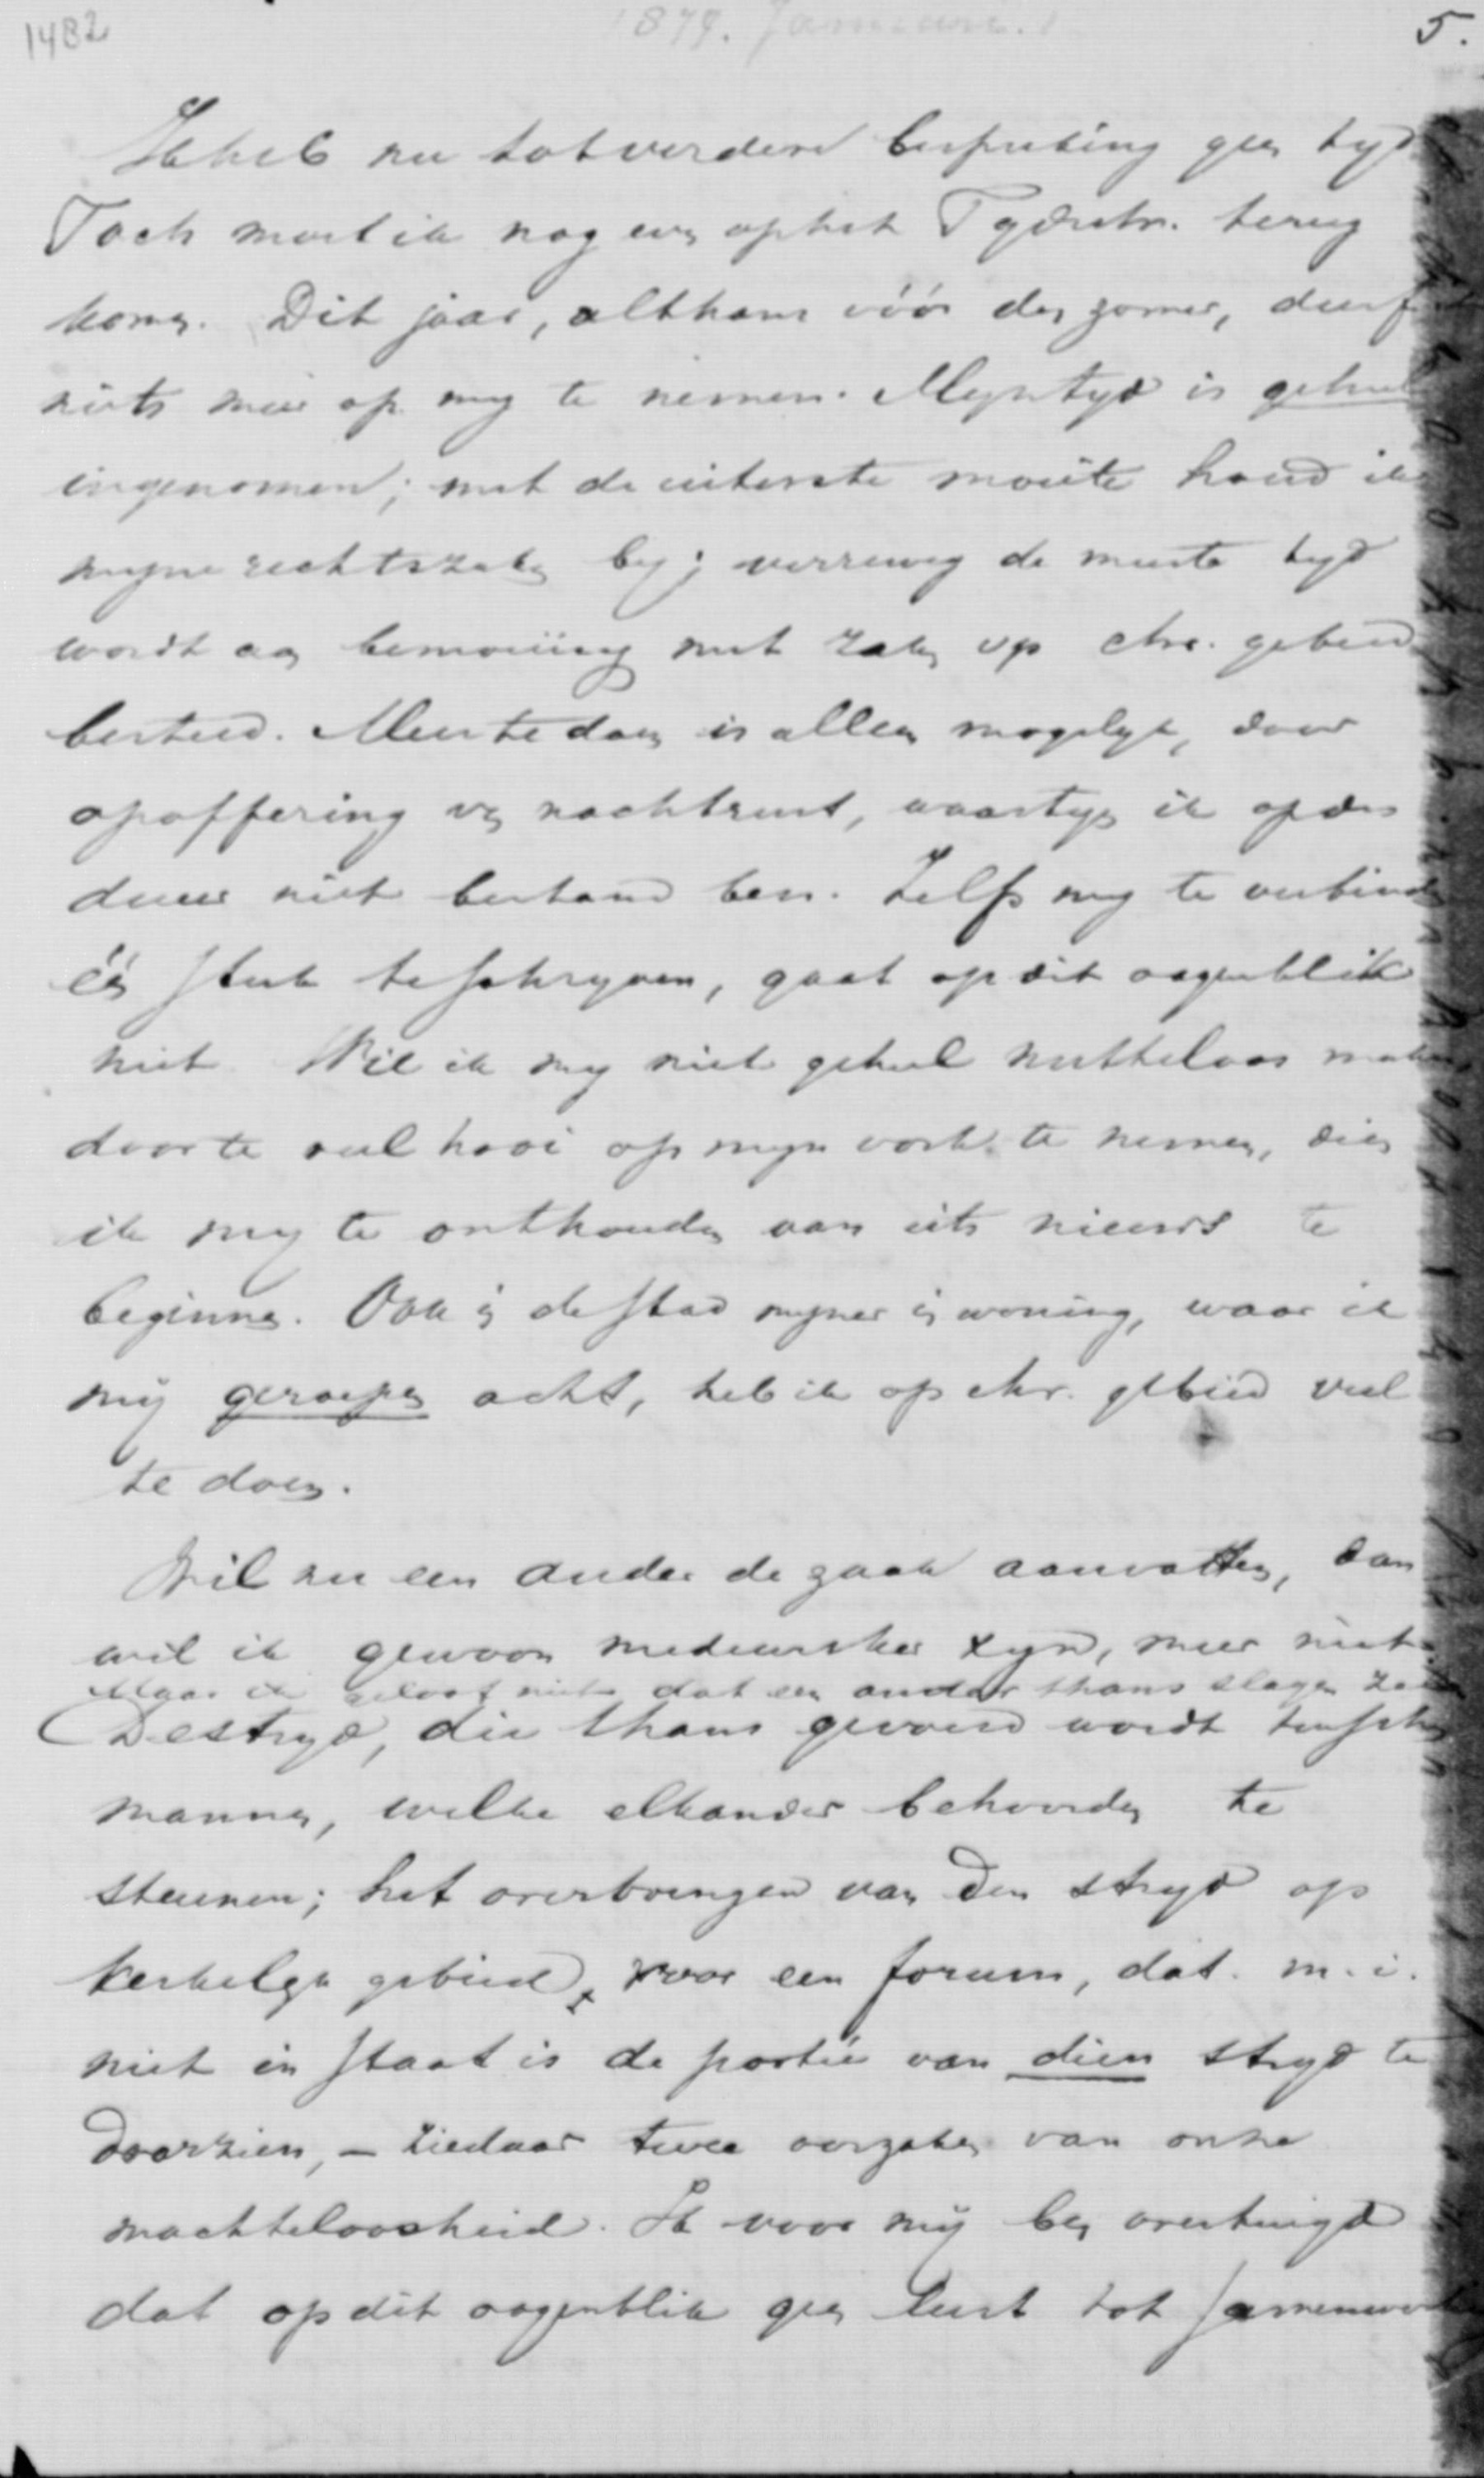 1482
1879. Januari.
5.
Ik heb nu tot verdere bespreking geen tyd
Toch moet ik nog even op het Tydschr. terug
komen. Dit jaar, althans vóór den zomer, durf
niets meer op my te nemen. Myn tyd is geheel
ingenomen; met de uiterste moeite houd ik
myne rechtszaken by; verreweg de meeste tyd
wordt aan bemoeiing met zaken op chr. gebied
besteed. Meer te doen is alleen mogelyk, door
opoffering van nachtrust, waartegen ik op den
duur niet bestand ben. Zelfs my te verbinden
één stuk te schryven, gaat op dit oogenblik
niet. Wil ik my niet geheel nutteloos maken
door te veel hooi op myn vork te nemen, dien
ik my te onthouden van iets nieuws te
beginnen. Ook in de stad myner inwoning, waar ik
mij geroepen acht, heb ik op chr. gebied veel
te doen.
Wil nu een ander de zaak aanvatten, dan
wil ik gewoon medewerker zyn, meer niet.
Maar ik geloof niet dat een ander thans slagen zal
De stryd, die thans gevoerd wordt tusschen
mannen, welke elkander behoorden te
steunen; het overbrengen van den stryd op
kerkelyk gebied, voor een forum, dat m.i.
niet in staat is de portée van dien stryd te
doorzien, – ziedaar twee oorzaken van onze
machteloosheid. Ik voor mij ben overtuigd
dat op dit oogenblik geen lust tot samenwerk